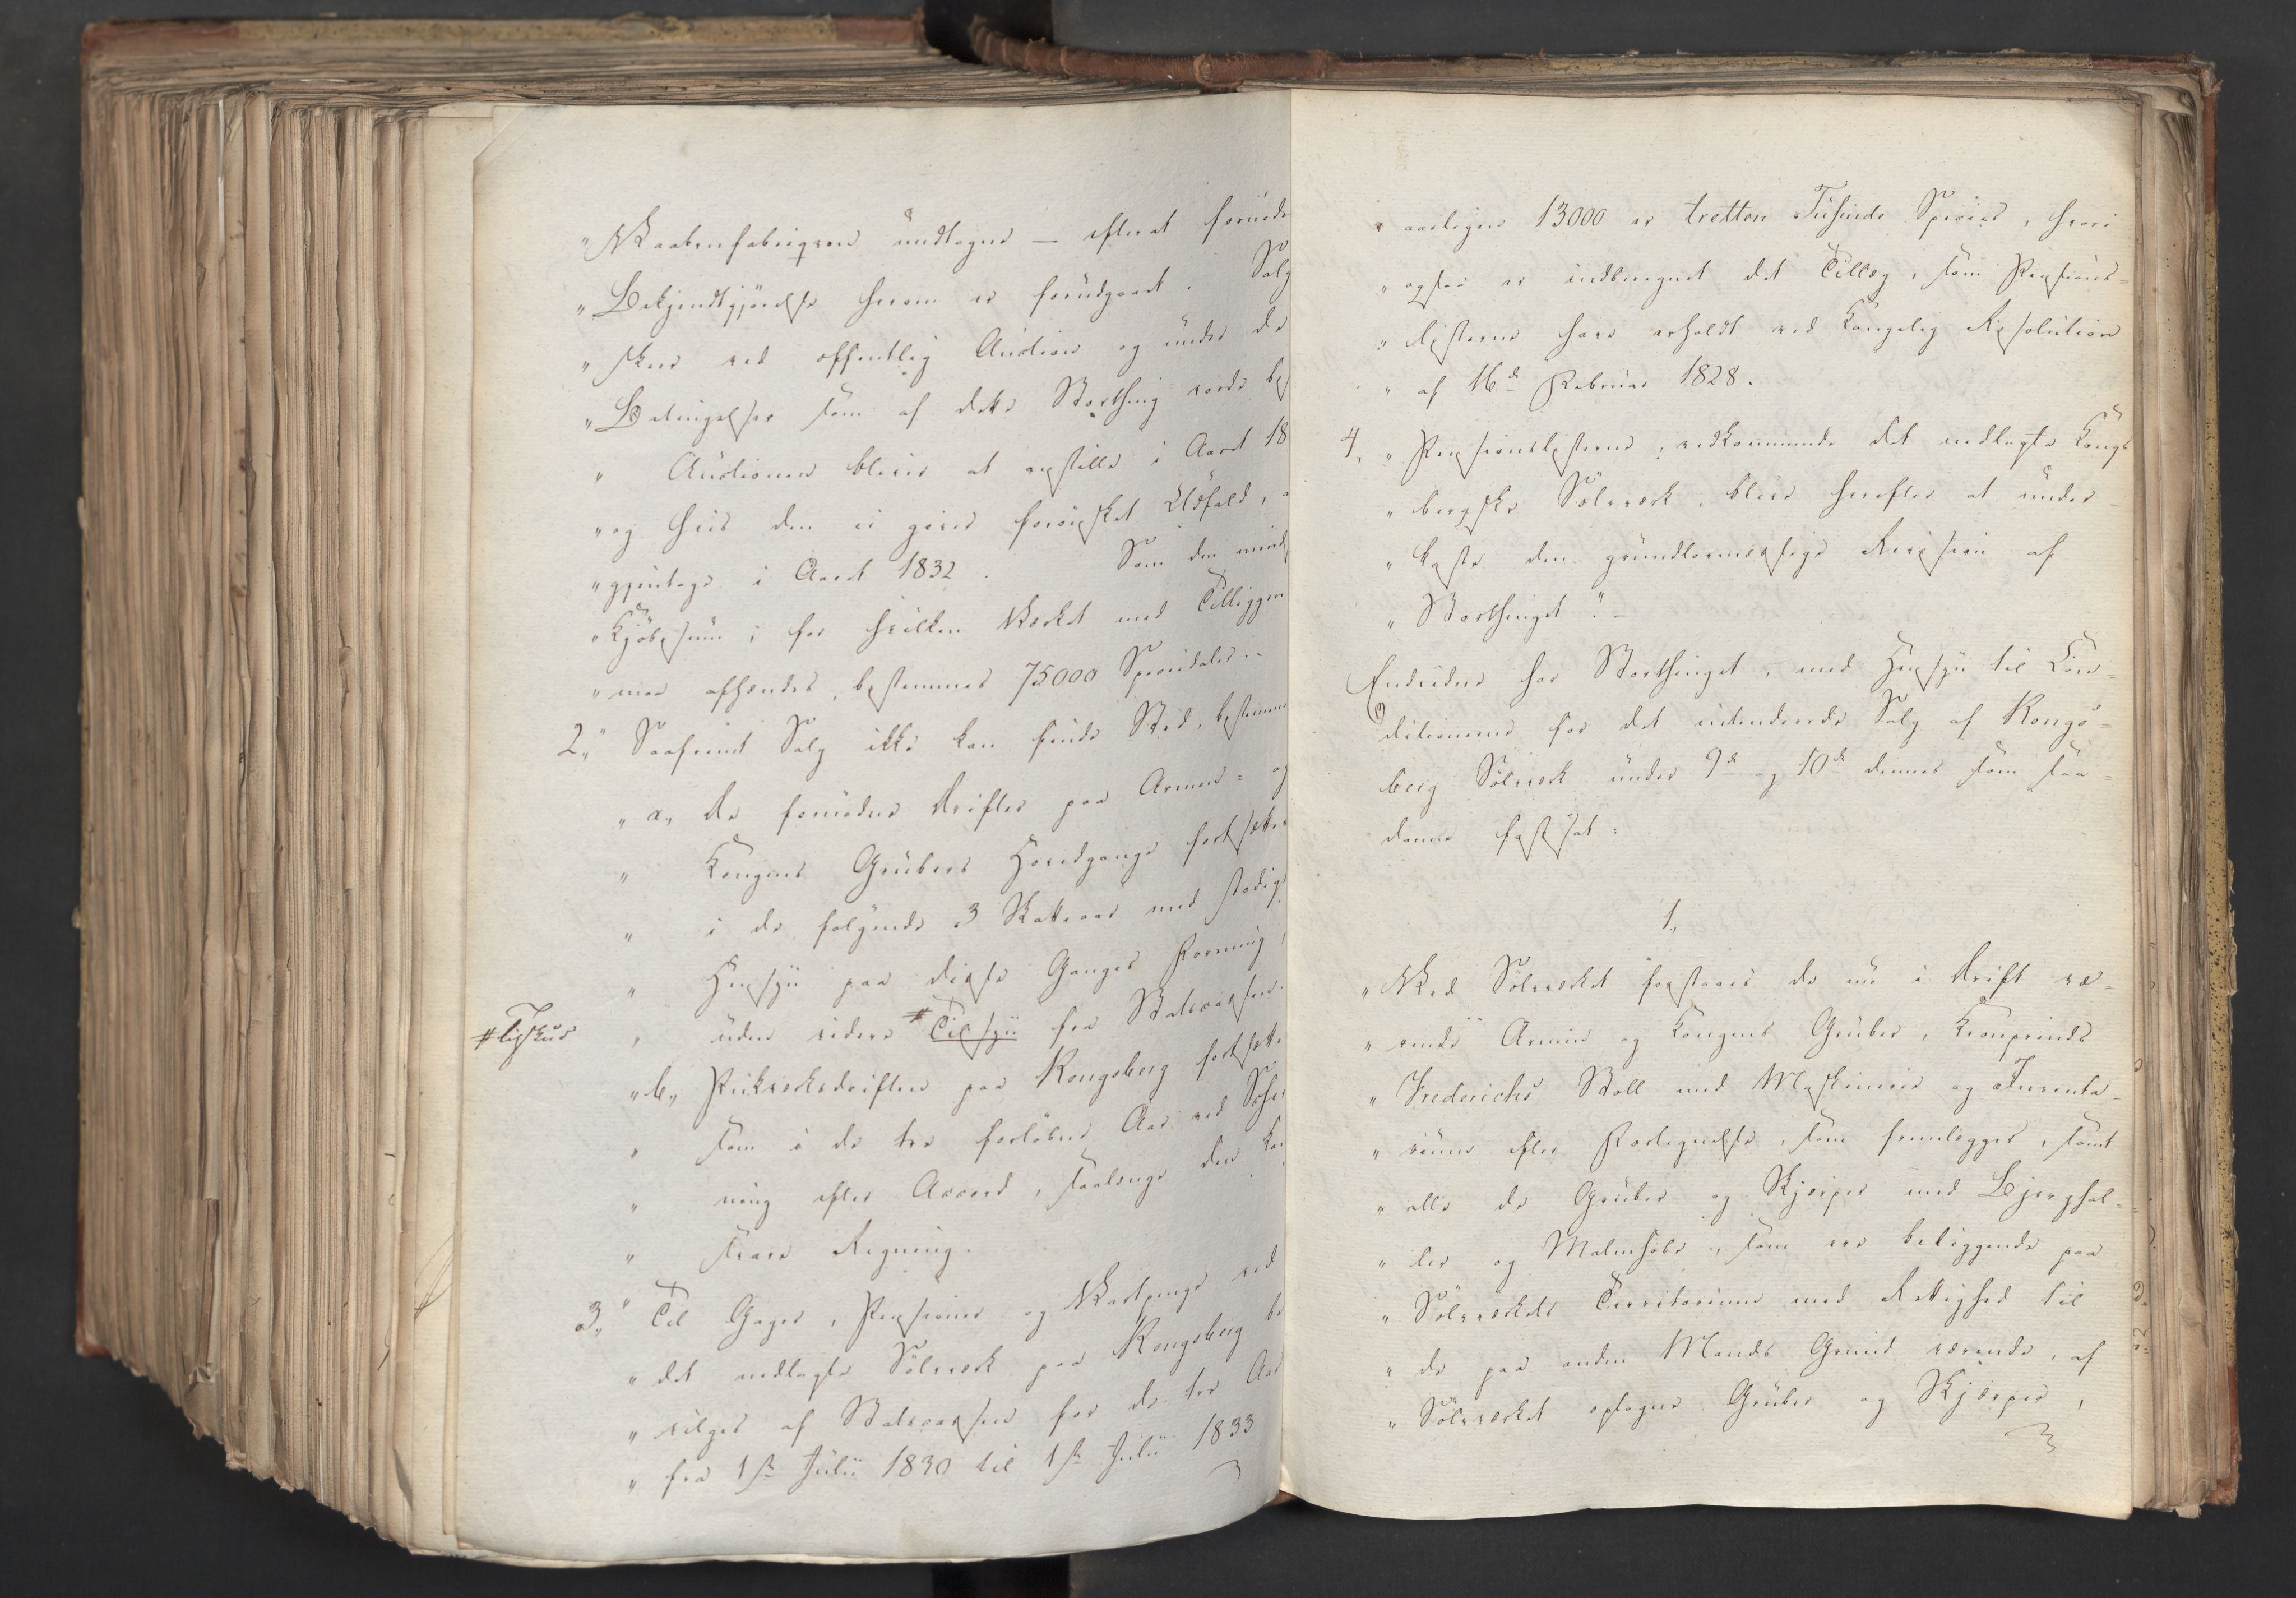 "Vaabenfabriqven undtagne — efterat fornøden
"Bekjendtgjørelse herom er forudgaaet. Salg
"skeer ved offentlig Auction og under de
"Betingelser som af dette Storthing vorde be
" Auctionen bliver at anstille i Aaret 18
"og hvis den ei giver forønsket Udfald,
"gjentages i Aaret 1832. Som den mind
"Kjøbesum, for hvilken Værket med Tilliggen
"maa afhændes, bestemmes 75000 Speciedaler.-
2, "Saafremt Salg ikke kan finde Sted, bestemmes
"a, De fornødne Drifter paa Armen- og
" Kongens Grubers Hovedgange fortsættes
" i de følgende 3 Skatteaar med stadigt
" Hensyn paa disse Ganges Førning,
" uden videre # Tilsyn fra Statscassen.
# Tilskud
"b, Pukværksdriften paa Kongsberg fortsættes
" som i de tre forløbne Aar ved
" ning efter Accord, saalænge den kan
" svare Regning.
3, "Til Gager, Pensioner og Vartpenge ved
"det nedlagte Sølvværk paa Kongsberg be
"vilges af Statscassen for de tre Aar
"fra 1ste Julii 1830 til 1ste Julii 1833
"aarligen 13000 er tretten Tusinde Species, hvori
"ogsaa er indberegnet det Tillæg, som Pensions-
"listerne have erholdt ved Kongelig Resolution
"af 16de Februar 1828.
4, "Pensionslisterne, vedkommende det nedlagte Kongs
"bergske Sølvværk, blive herefter at under-
"kaste den grundlovmæssige Revision af
"Storthinget".-
Endvidere har Storthinget, med Hensyn til Con-
ditionerne for det intenderede Salg af Kongs-
berg Sølvværk under 9de og 10de dennes som saa-
danne fastsat:
1,
"Ved Sølvværket forstaaes de nu i Drift væ-
"rende Armen og Kongens Gruber, Kronprinds
"Frederichs Stoll med Maskinerie og Inventa-
"rium efter Fortegnelse, som fremlægges, samt
"alle de Gruber og Skjerper med Bjerghal-
"der og Malmhobe, som ere beliggende paa
"Sølvværkets Territorium med Rettighed til
"de paa anden Mands Grund værende, af
"Sølvværket optagne Gruber og Skjerper,